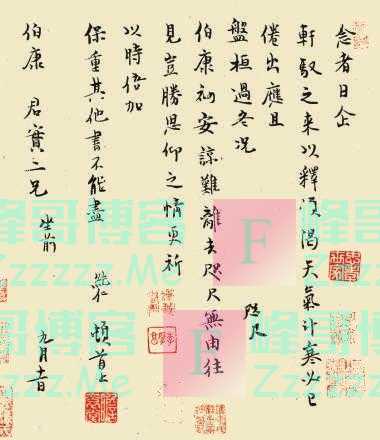 念者日企
軒馭之來以釋傾渴天氣計寒必已
倦出應且
盤桓過冬況
伯康初安諒難離去咫尺無由往
咫尺
見豈勝思仰之情更祈
以時倍加
保重其他書不能盡
純仁 頓首上
伯康 君實二兄 坐前
九月十一日
峰哥博客
Zzzzz.Me
F
E